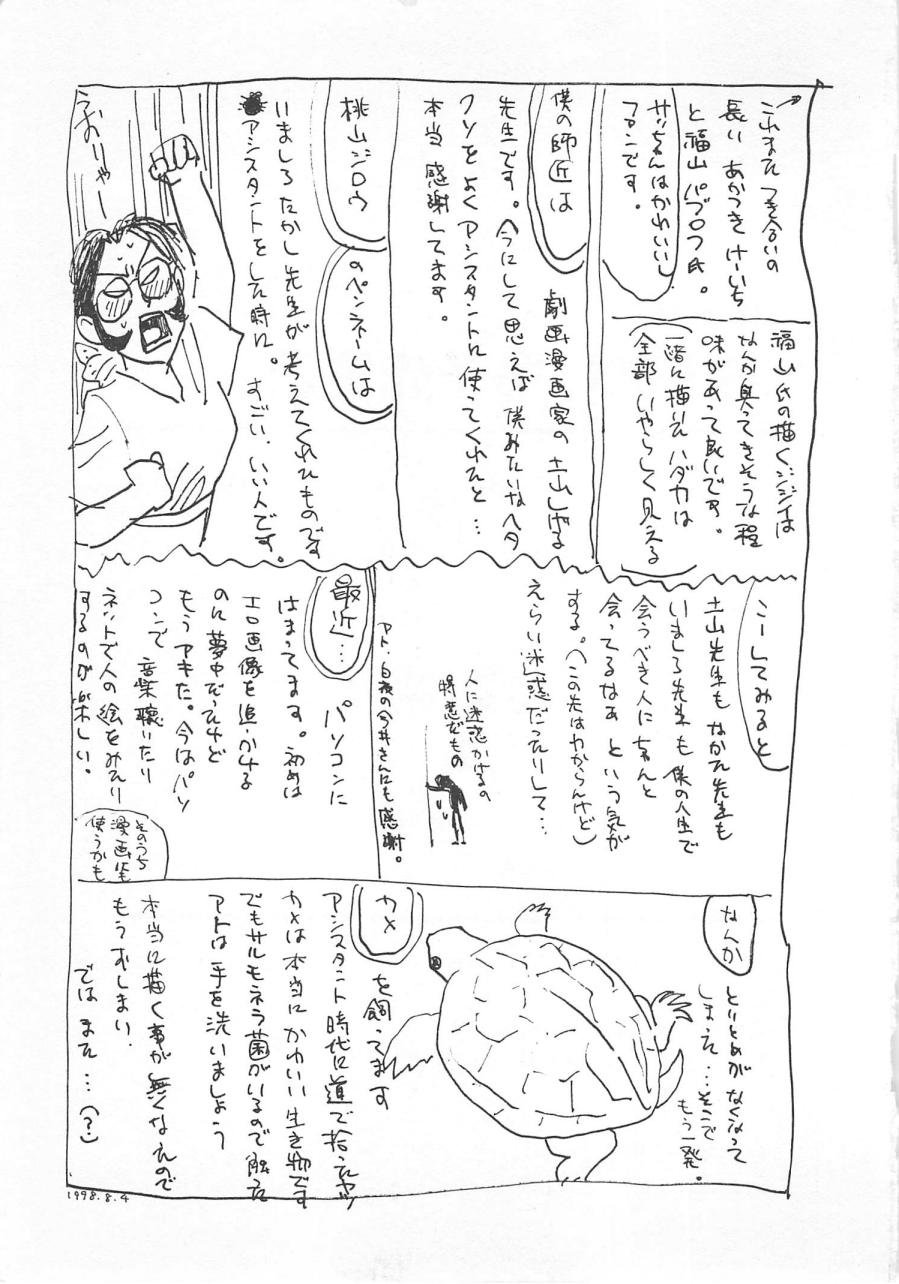 これまたつき合いの
長い あかつきけーいち
と福山パブロフ氏。
サッちんはかわいい
ファンです。
福山氏の描くジジイは
なんか臭ってきそうな程
味があって良いです。
一緒に描いたハダカは
全部いやらしく見える
僕の師匠は
劇画漫画家の土山しげる
先生です。今にして思えば僕みたいなヘタ
クソをよくアシスタントに使ってくれたと…
本当感謝してます。
桃山ジロウ
のペンネームは
いましろたかし先生が考えてくれたものです
アシスタントをした時に。すごい、いい人です。
うおりゃー
こーしてみると
土山先生もなかた先生も
いましろ先生も僕の人生で
会うべき人にちゃんと
会ってるなぁという気が
する。(この先はわからんけど)
えらい迷惑だったりして…
人に迷惑かけるの
得意だもの
アト、白夜の今井さんにも感謝。
最近…
パソコンに
はまってます。初めは
エロ画像を追いかける
のに夢中だったけど
もうアキた。今はパソ
コンで音楽聴いたり
ネットで人の絵をみたり
するのが楽しい。
そのうち
漫画にも
使うかも
なんか
とりとめがなくなって
しまった…そこで
もう一発。
カメ
を飼ってます
アシスタント時代に道で拾ったヤツ
カメは本当にかわいい生き物です
でもサルモネラ菌がいるので触った
アトは手を洗いましょう
本当に描く事が無くなったので
もうおしまい。
では また…(?)
1998.8.4